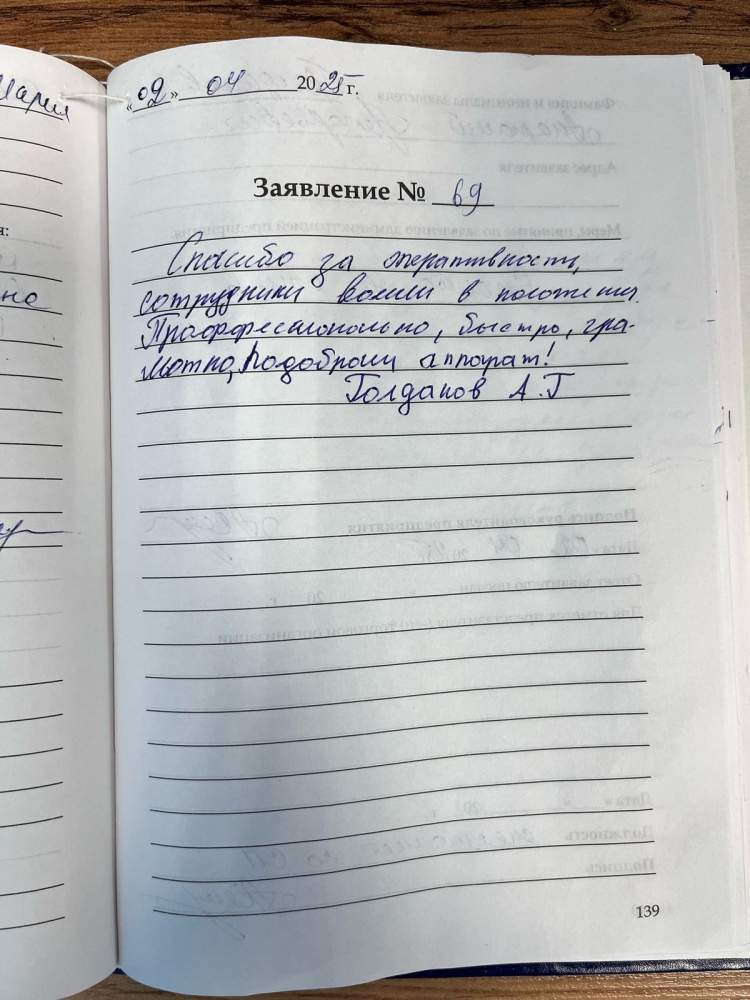 Марии
но
я:
«02» 04 2021 г.
Заявление № 69
Спасибо за оперативность,
сотрудники вошли в положения.
Праффесианально, быстро, гра-
мотно, подобрали аппарат!
Голданов А.Г
139